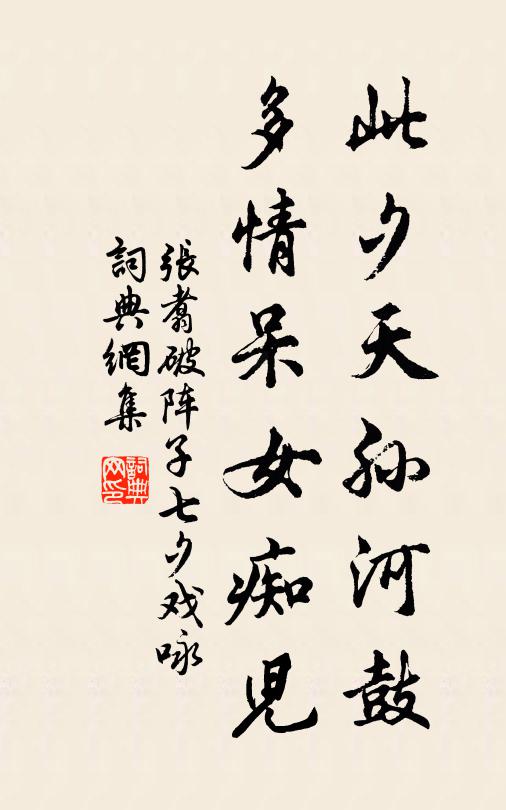 此夕天孙河鼓
多情呆女痴児
張翥破阵子七夕戏咏
詞典網集
詞典网印